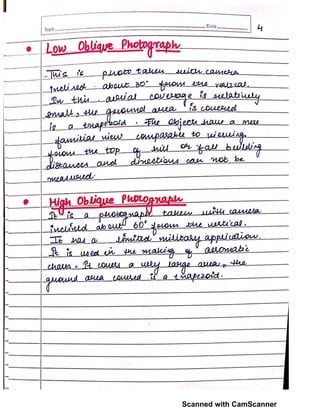 Topic
Date
4
Low Oblique Photograph
This is photo taken with camera
inclined about 30° from the vertical.
In this aerial coverage is relatively
small, the ground area is covered
is a trapezoid. The objects have a more
familiar view comparable to viewing
from the top of hill or tall building
distances and directions can not be
measured.
High Oblique Photograph
It is a photograph taken with camera
inclined about 60° from the vertical.
It has a limited military application.
It is used in the making of aeronautic
charts. It covers a very large area, the
ground area covered is a trapezoid.
Scanned with CamScanner